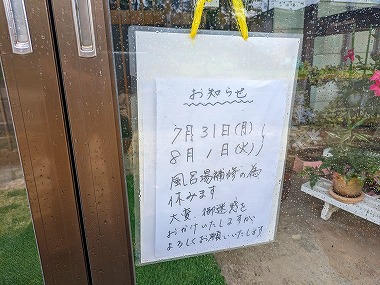 お知らせ
7月31日(月)
8月1日(火)
風呂場補修の為
休みます
大変御迷惑を
おかけいたしますが
よろしくお願いいたします